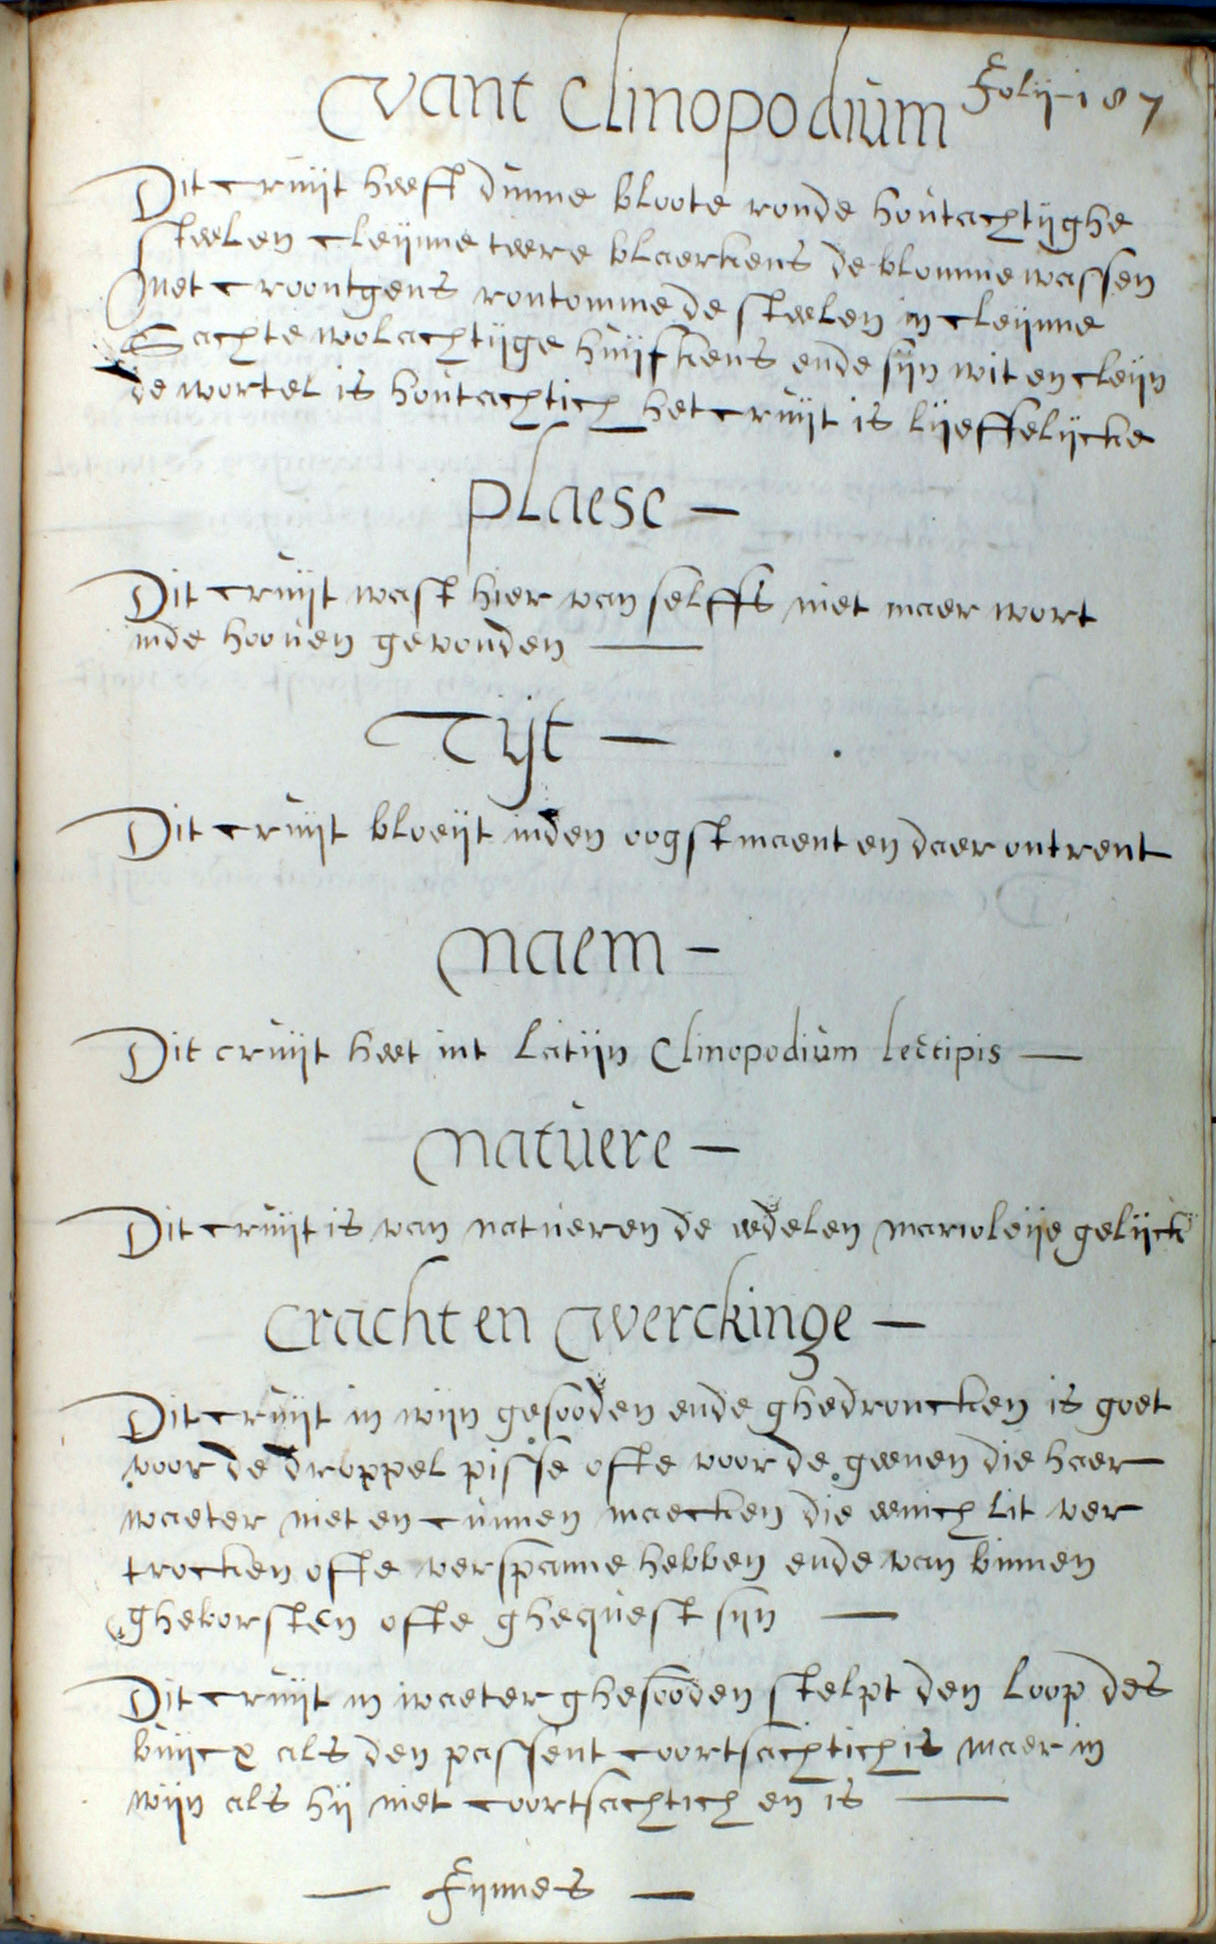 vant clinopodium Folij 187
Dit cruijt heeft dunne bloote ronde houtachtijghe
steelen cleijnne teere blaerkens de blomme wassen
Met croontgens rontomme de steelen in cleijnne
Sachte wolachtijge huijfkens ende sijn wit en cleijn
de wortel is houtachtich het cruijt is lijeffelijcke
plaese —
Dit cruijt wast hier van selffs niet maer wort
inde hooven gevonden —
Tijt —
Dit cruijt bloeijt inden oogstmaent en daer ontrent
Naem —
Dit cruijt heet int Latijn Clinopodium lectipis —
Natuere —
Dit cruijt is van natueren de eedelen marioleije gelijck
Cracht en werckinge —
Dit cruijt in wijn gesooden ende ghedroncken is goet
voor de droppel pisse ofte voor de geenen die haer
waeter niet en cunnen maecken die eenich lit ver
trocken ofte verspanne hebben ende van binnen
ghekorsten ofte ghequest sijn —
Dit cruijt in waeter ghesooden stelpt den loop des
buijcx als den passent coortsachtich is maer in
wijn als hij niet coortsachtich en is —
— Fijnnes —